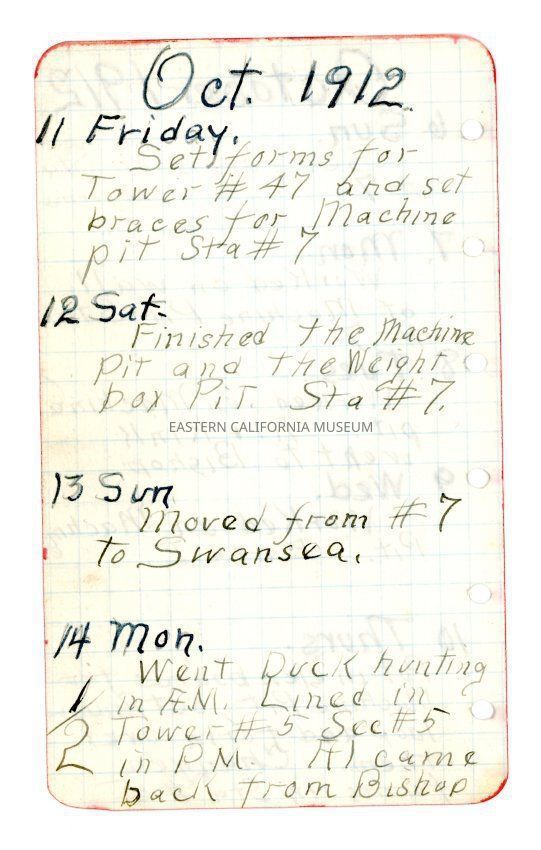 Oct. 1912
11 Friday.
Set forms for
Tower # 47 and set
braces for Machine
pit Sta # 7
12 Sat-
Finished the Machine
Pit and the Weight
box Pit. Sta # 7.
EASTERN CALIFORNIA MUSEUM
13 Sun
Moved from # 7
to Swansea.
14 Mon.
Went Duck hunting
1/2 in A.M. Lined in
Tower # 5 Sec # 5
in P.M. Al came
back from Bishop